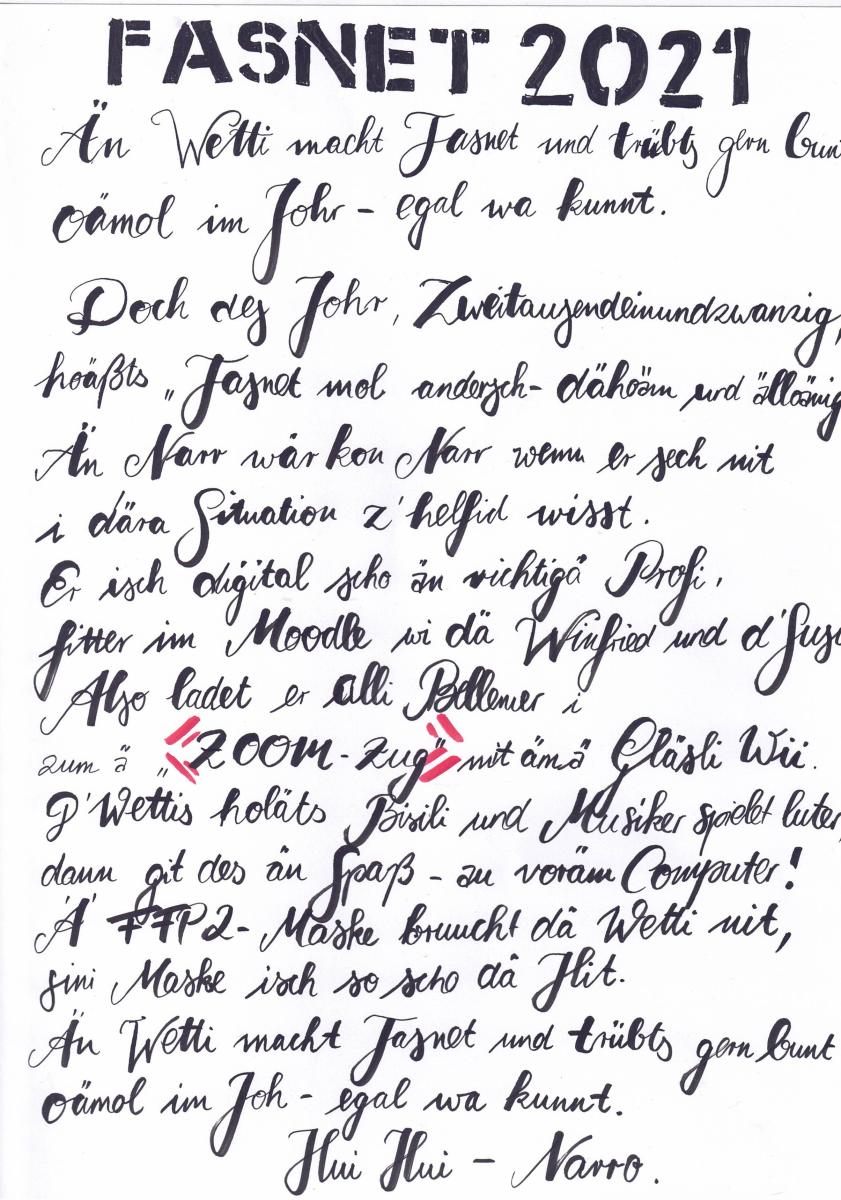 FASNET 2021
Än Wetti macht Fasnet und trübts gern bunt
oämol im Johr - egal wa kunnt.
Doch des Johr, Zweitausendeinundzwanzig,
hoäßts „Fasnet mol andersch- dähoäm und älloänig
Än Narr wär kon Narr wenn er sech nit
i dära Situation z'helfid wisst.
Er isch digital scho än richtigä Profi,
fitter im Moodle wi dä Winfried und d'Susi
Also ladet er alli Bellemer i
zum ä „ZOOM-Zug" mit ämä Gläsli Wii.
D'Wettis holäts Bisili und Musiker spielet luter,
dann git des än Spaß - au voräm Computer!
'Ä' FFP2- Maske bruucht dä Wetti nit,
sini Maske isch so scho dä Hit.
Än Wetti macht Fasnet und trübts gern bunt
oämol im Joh - egal wa kunnt.
Hui Hui - Narro.